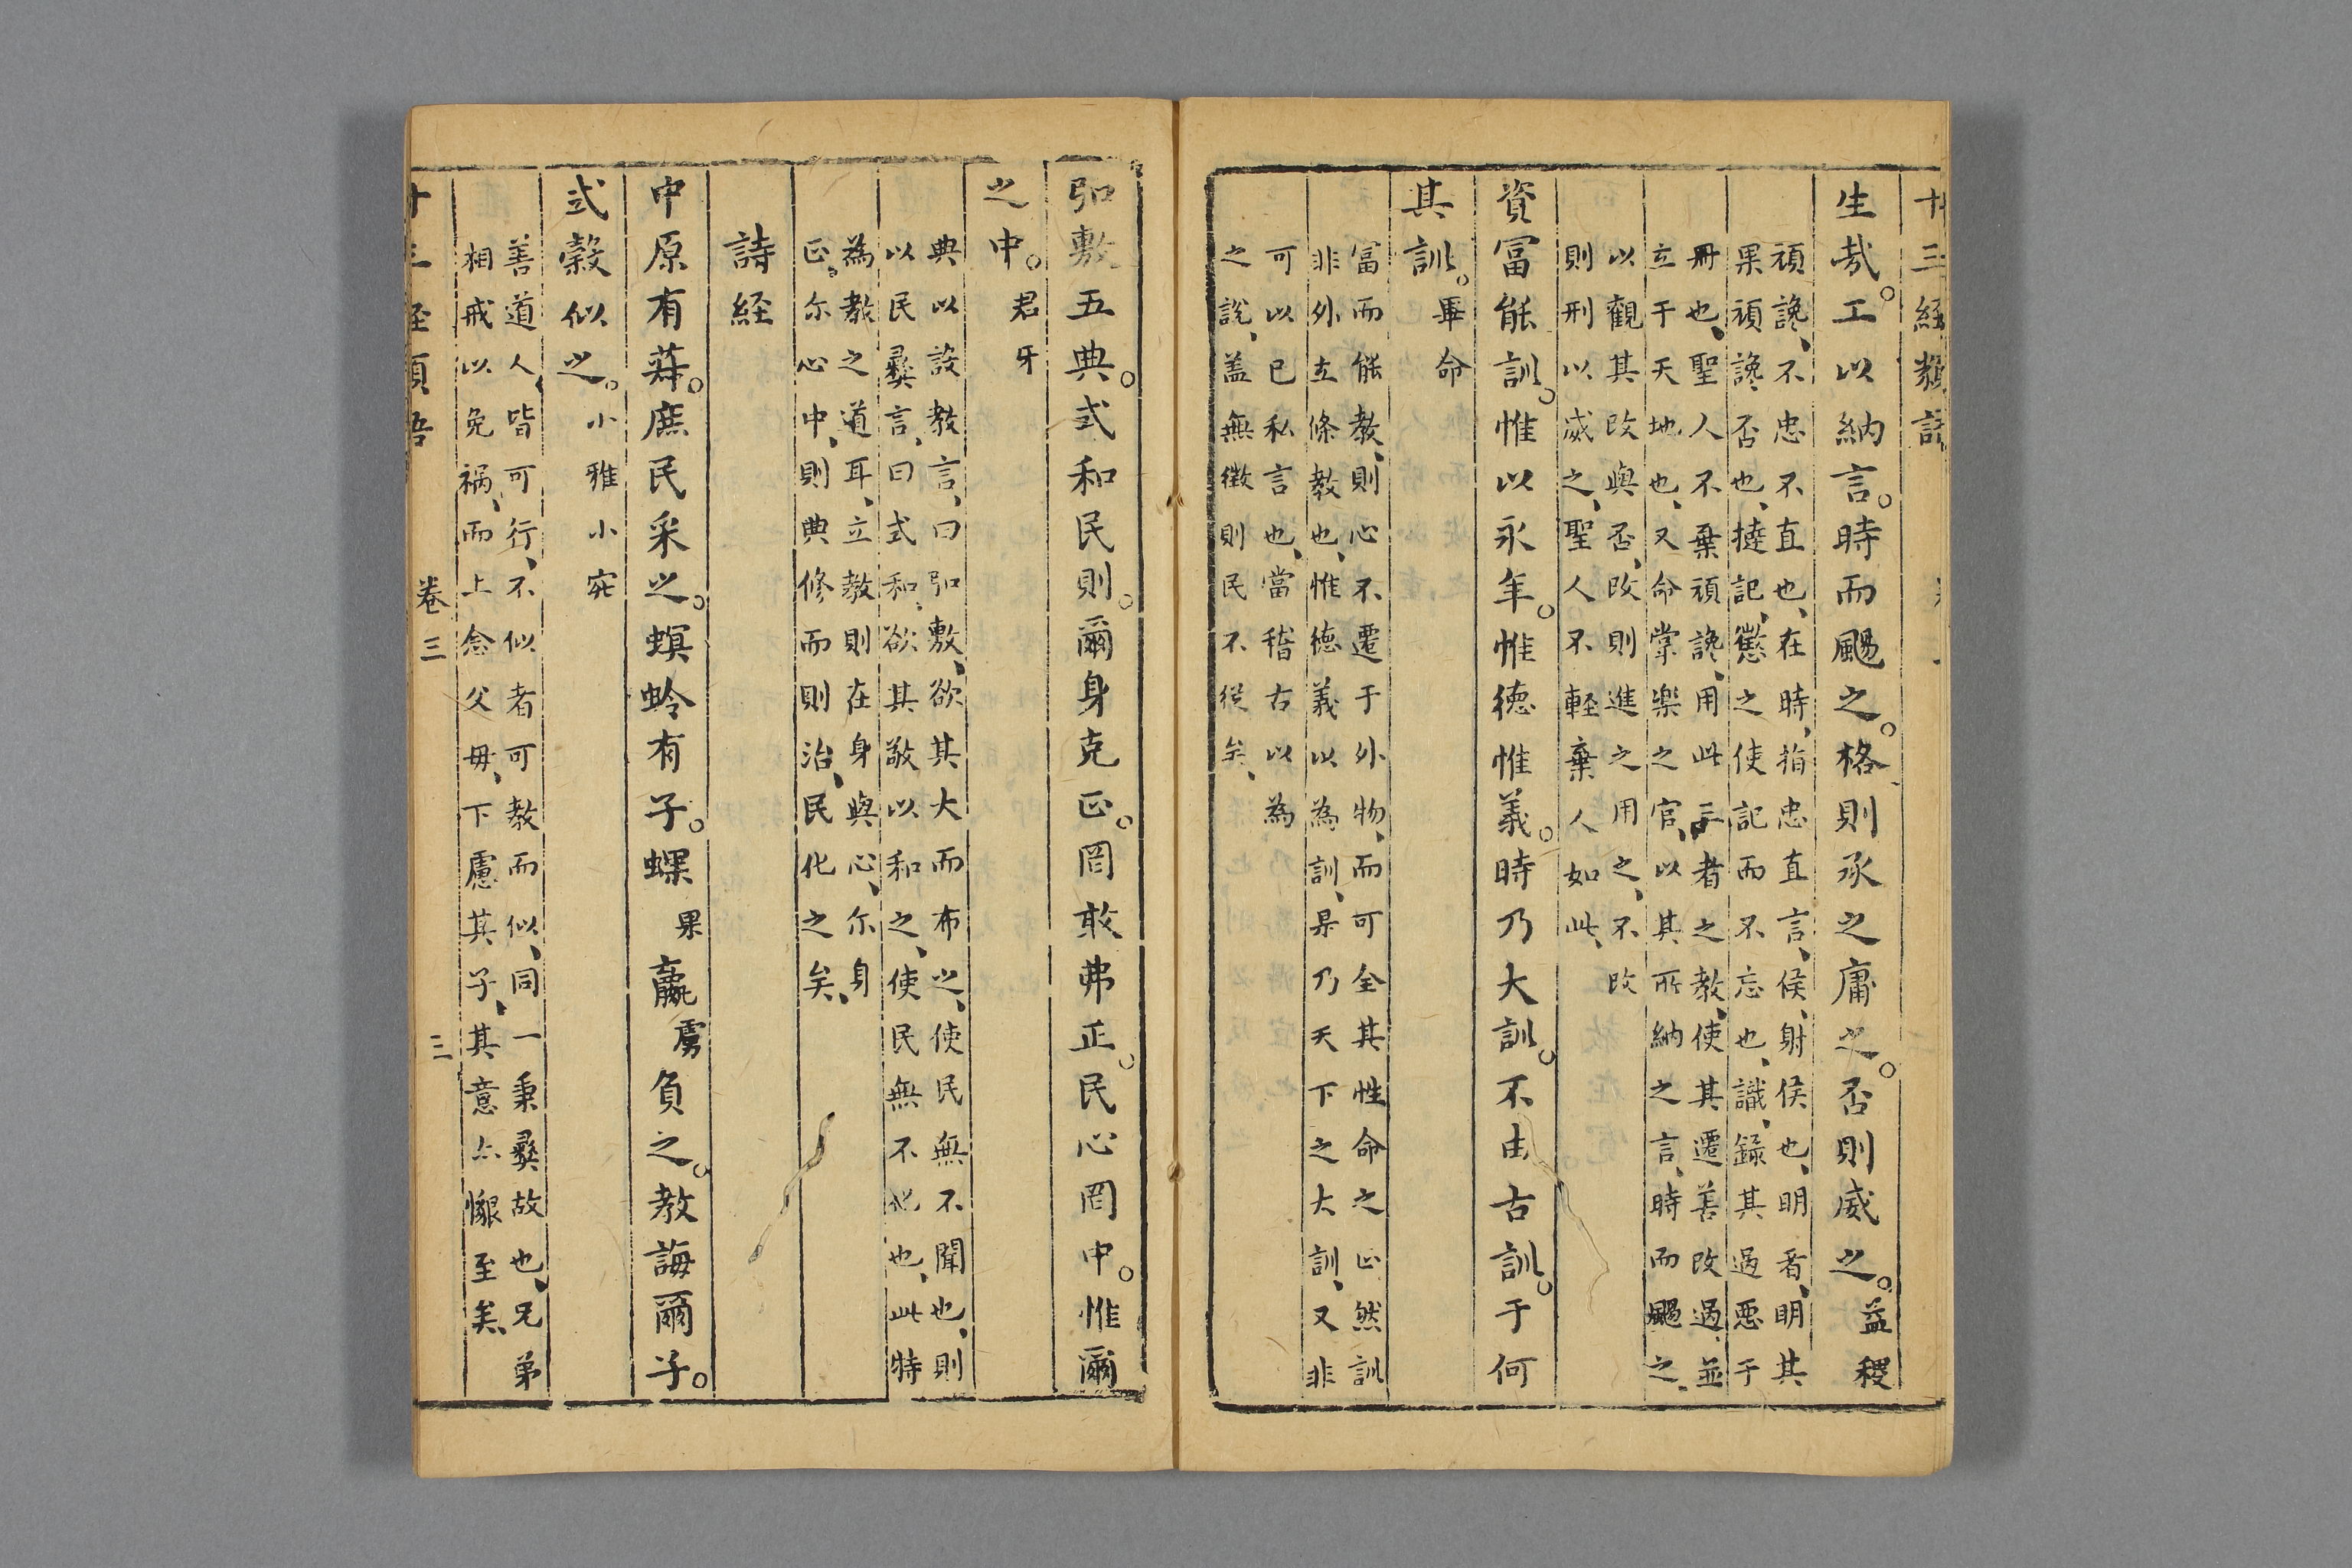 十三経類語
生哉。工以納言。時而颺之。格則承之庸之。否則威之。益稷
頑讒、不忠不直也、在時、指忠直言、侯、射侯也、明者、明其
果頑讒否也、撻記、懲之使記而不忘也、識、録其過惡于
冊也、聖人不棄頑讒、用此三者之教、使其遷善改過、並
立于天地也、又命掌樂之官、以其所納之言、時而颺之、
以觀其改與否、改則進之用之、不改
則刑以威之、聖人不輕棄人如此、
資富能訓。惟以永年。惟德惟義。時乃大訓。不由古訓。于何
其訓。畢命
富而能教、則心不遷于外物、而可全其性命之正然訓
非外立條教也、惟德義以為訓、是乃天下之大訓、又非
可以已私言也、當稽古以為
之説、盖無徴則民不從矣、
弘敷五典。式和民則。爾身克正。罔敢弗正。民心罔中。惟爾
之中。君牙
典以設教言、曰弘敷、欲其大而布之、使民無不聞也、則
以民彜言、曰式和、欲其敬以和之、使民無不化也、此特
為教之道耳、立教則在身與心、尓身
正、尓心中、則典修而則治、民化之矣、
詩経
中原有菽。庶民采之。螟蛉有子。蜾果蠃虜負之。教誨爾子。
式穀似之。小雅小宛
善道人皆可行、不似者可教而似、同一秉彜故也、兄弟
相戒以免禍、而上念父毋、下慮其子、其意亦懇至矣、
十三経類語 卷三 三